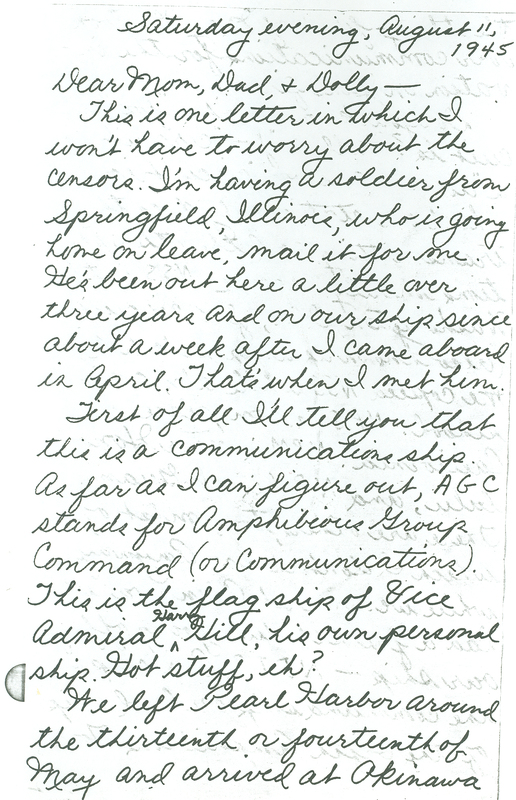 Saturday evening, August 11,
1945
Dear Mom, Dad, & Dolly—
This is one letter in which I
won't have to worry about the
censors. I'm having a soldier from
Springfield, Illinois, who is going
home on leave, mail it for me.
He's been out here a little over
three years and on our ship since
about a week after I came aboard
in April. That's when I met him.
First of all I'll tell you that
this is a communications ship.
As far as I can figure out, AGC
stands for Amphibious Group
Command (or Communications).
This is the flag ship of Vice
Admiral Harry Hill, his own personal
ship. Hot stuff, eh?
We left Pearl Harbor around
the thirteenth or fourteenth of
May and arrived at Okinawa